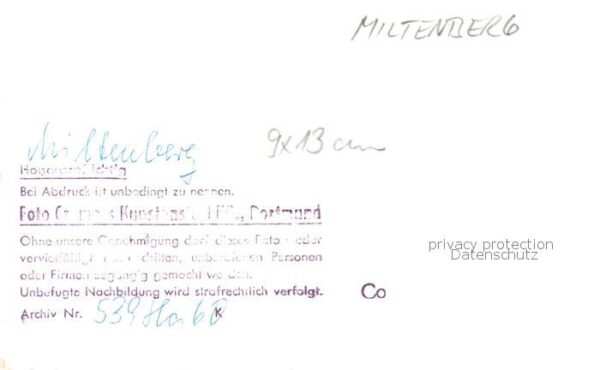 MILTENBERG
Miltenberg
9x13 cm
Bei Abdruck ist unbedingt zu nennen.
Foto Kunstanstalt Dortmund
Ohne unsere Genehmigung darf dieses Foto oder
vervielfältigt dritten, unberufenen Personen
oder Firmen zugängig gemacht werden.
Unbefugte Nachbildung wird strafrechtlich verfolgt.
Archiv Nr. 539
K
Co
privacy protection
Datenschutz